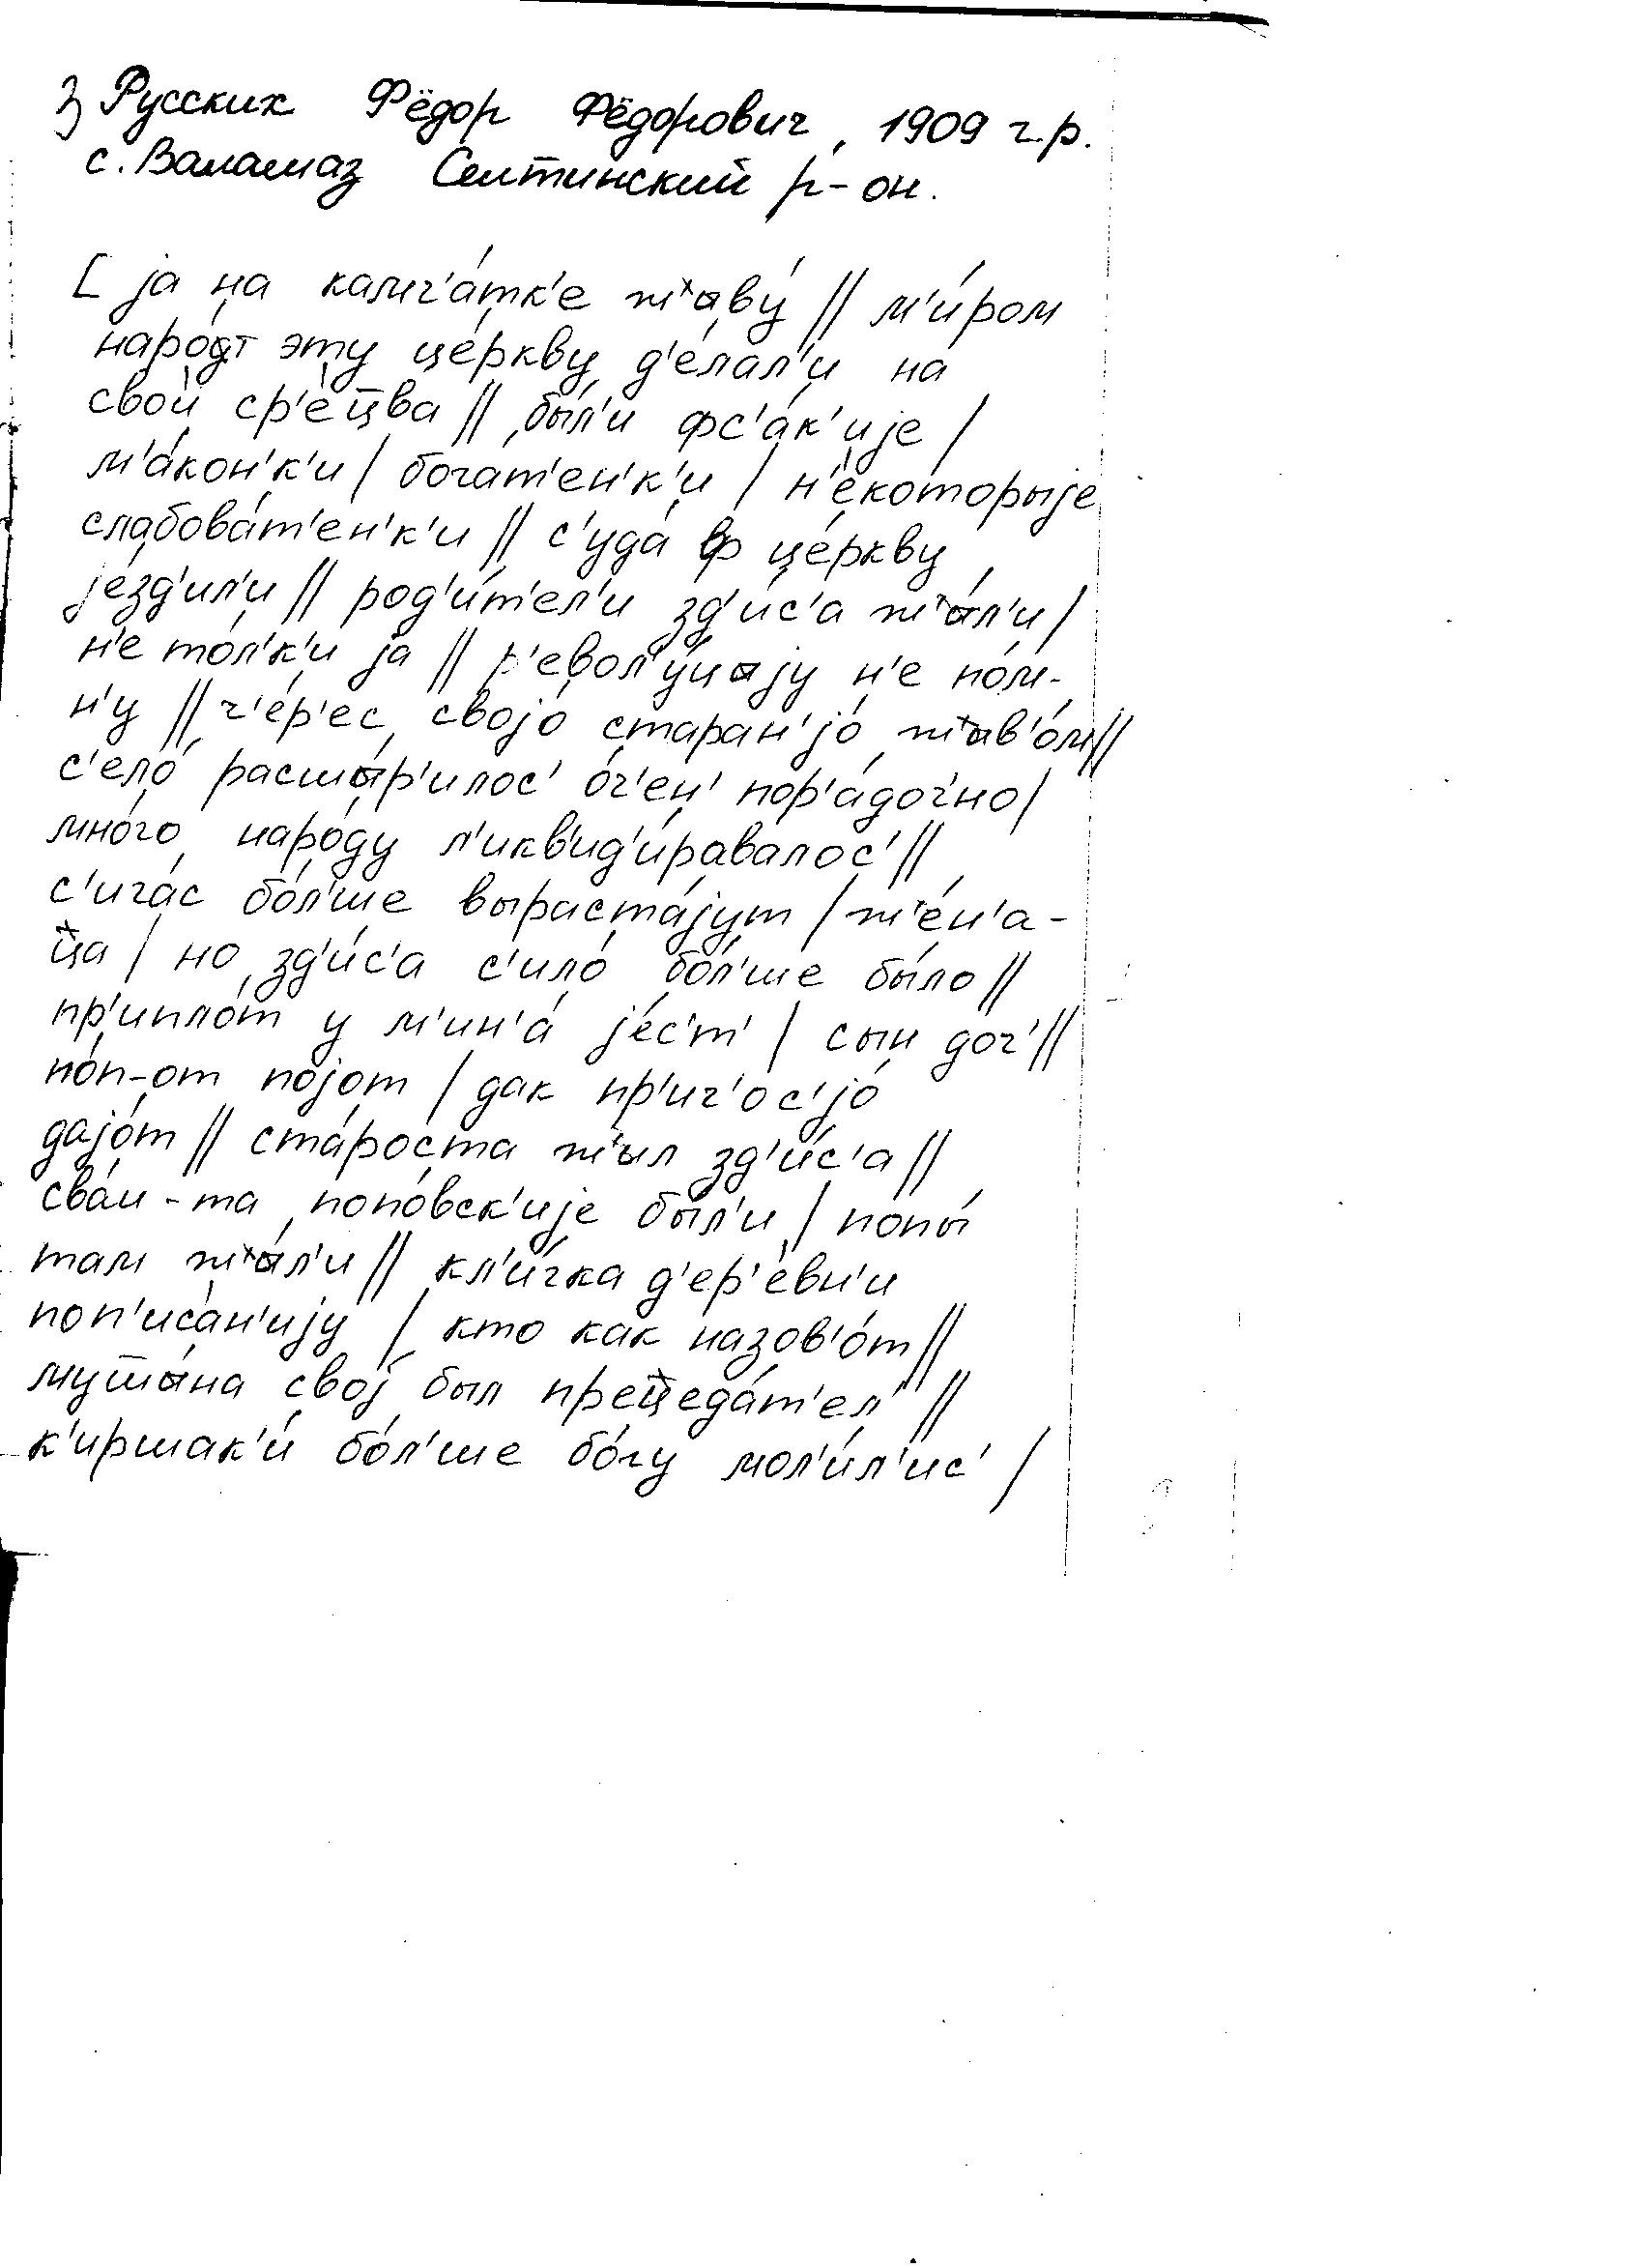 3) Русских Фёдор Фёдорович, 1909 г.р.
с. Валамаз Селтинский р-он.
[ ја на камч'а́тк'е жыву́ // м'и́ром
наро́т э́ту це́ркву д'е́лал'и на
свои́ ср'е́цва // бы́л'и фс'а́к'ије /
м'а́кон'к'и / бога́т'ен'к'и / н'е́которыје
слабова́т'ен'к'и // с'уда́ ф це́ркву
је́зд'ил'и // род'и́т'ел'и зд'и́с'а жы́л'и /
н'е то́л'к'и ја // р'евол'у́цыју н'е по́м-
н'у // ч'е́р'ес својо́ старан'јо́ жыв'о́м //
с'ело́ расшы́р'илос' о́ч'ен' пор'а́дочно /
мно́го наро́ду л'икв'ид'и́равалос' //
с'ича́с бо́л'ше выраста́јут / же́н'а-
ца / но зд'и́с'а с'ило́ бо́л'ше бы́ло //
пр'ипло́т у м'ин'а́ је́с'т' / сын доч' //
по́п-от појо́т / дак пр'ич'ос'јо́
дајо́т // ста́роста жыл зд'и́с'а //
сва́и-та попо́вск'ије бы́л'и / попы́
там жы́л'и // кл'и́чка д'ер'е́вн'и
поп'иса́н'ију / кто как назов'о́т //
мултына свој был прецеда́т'ел' //
к'иршак'и́ бо́л'ше бо́гу мол'и́л'ис' /